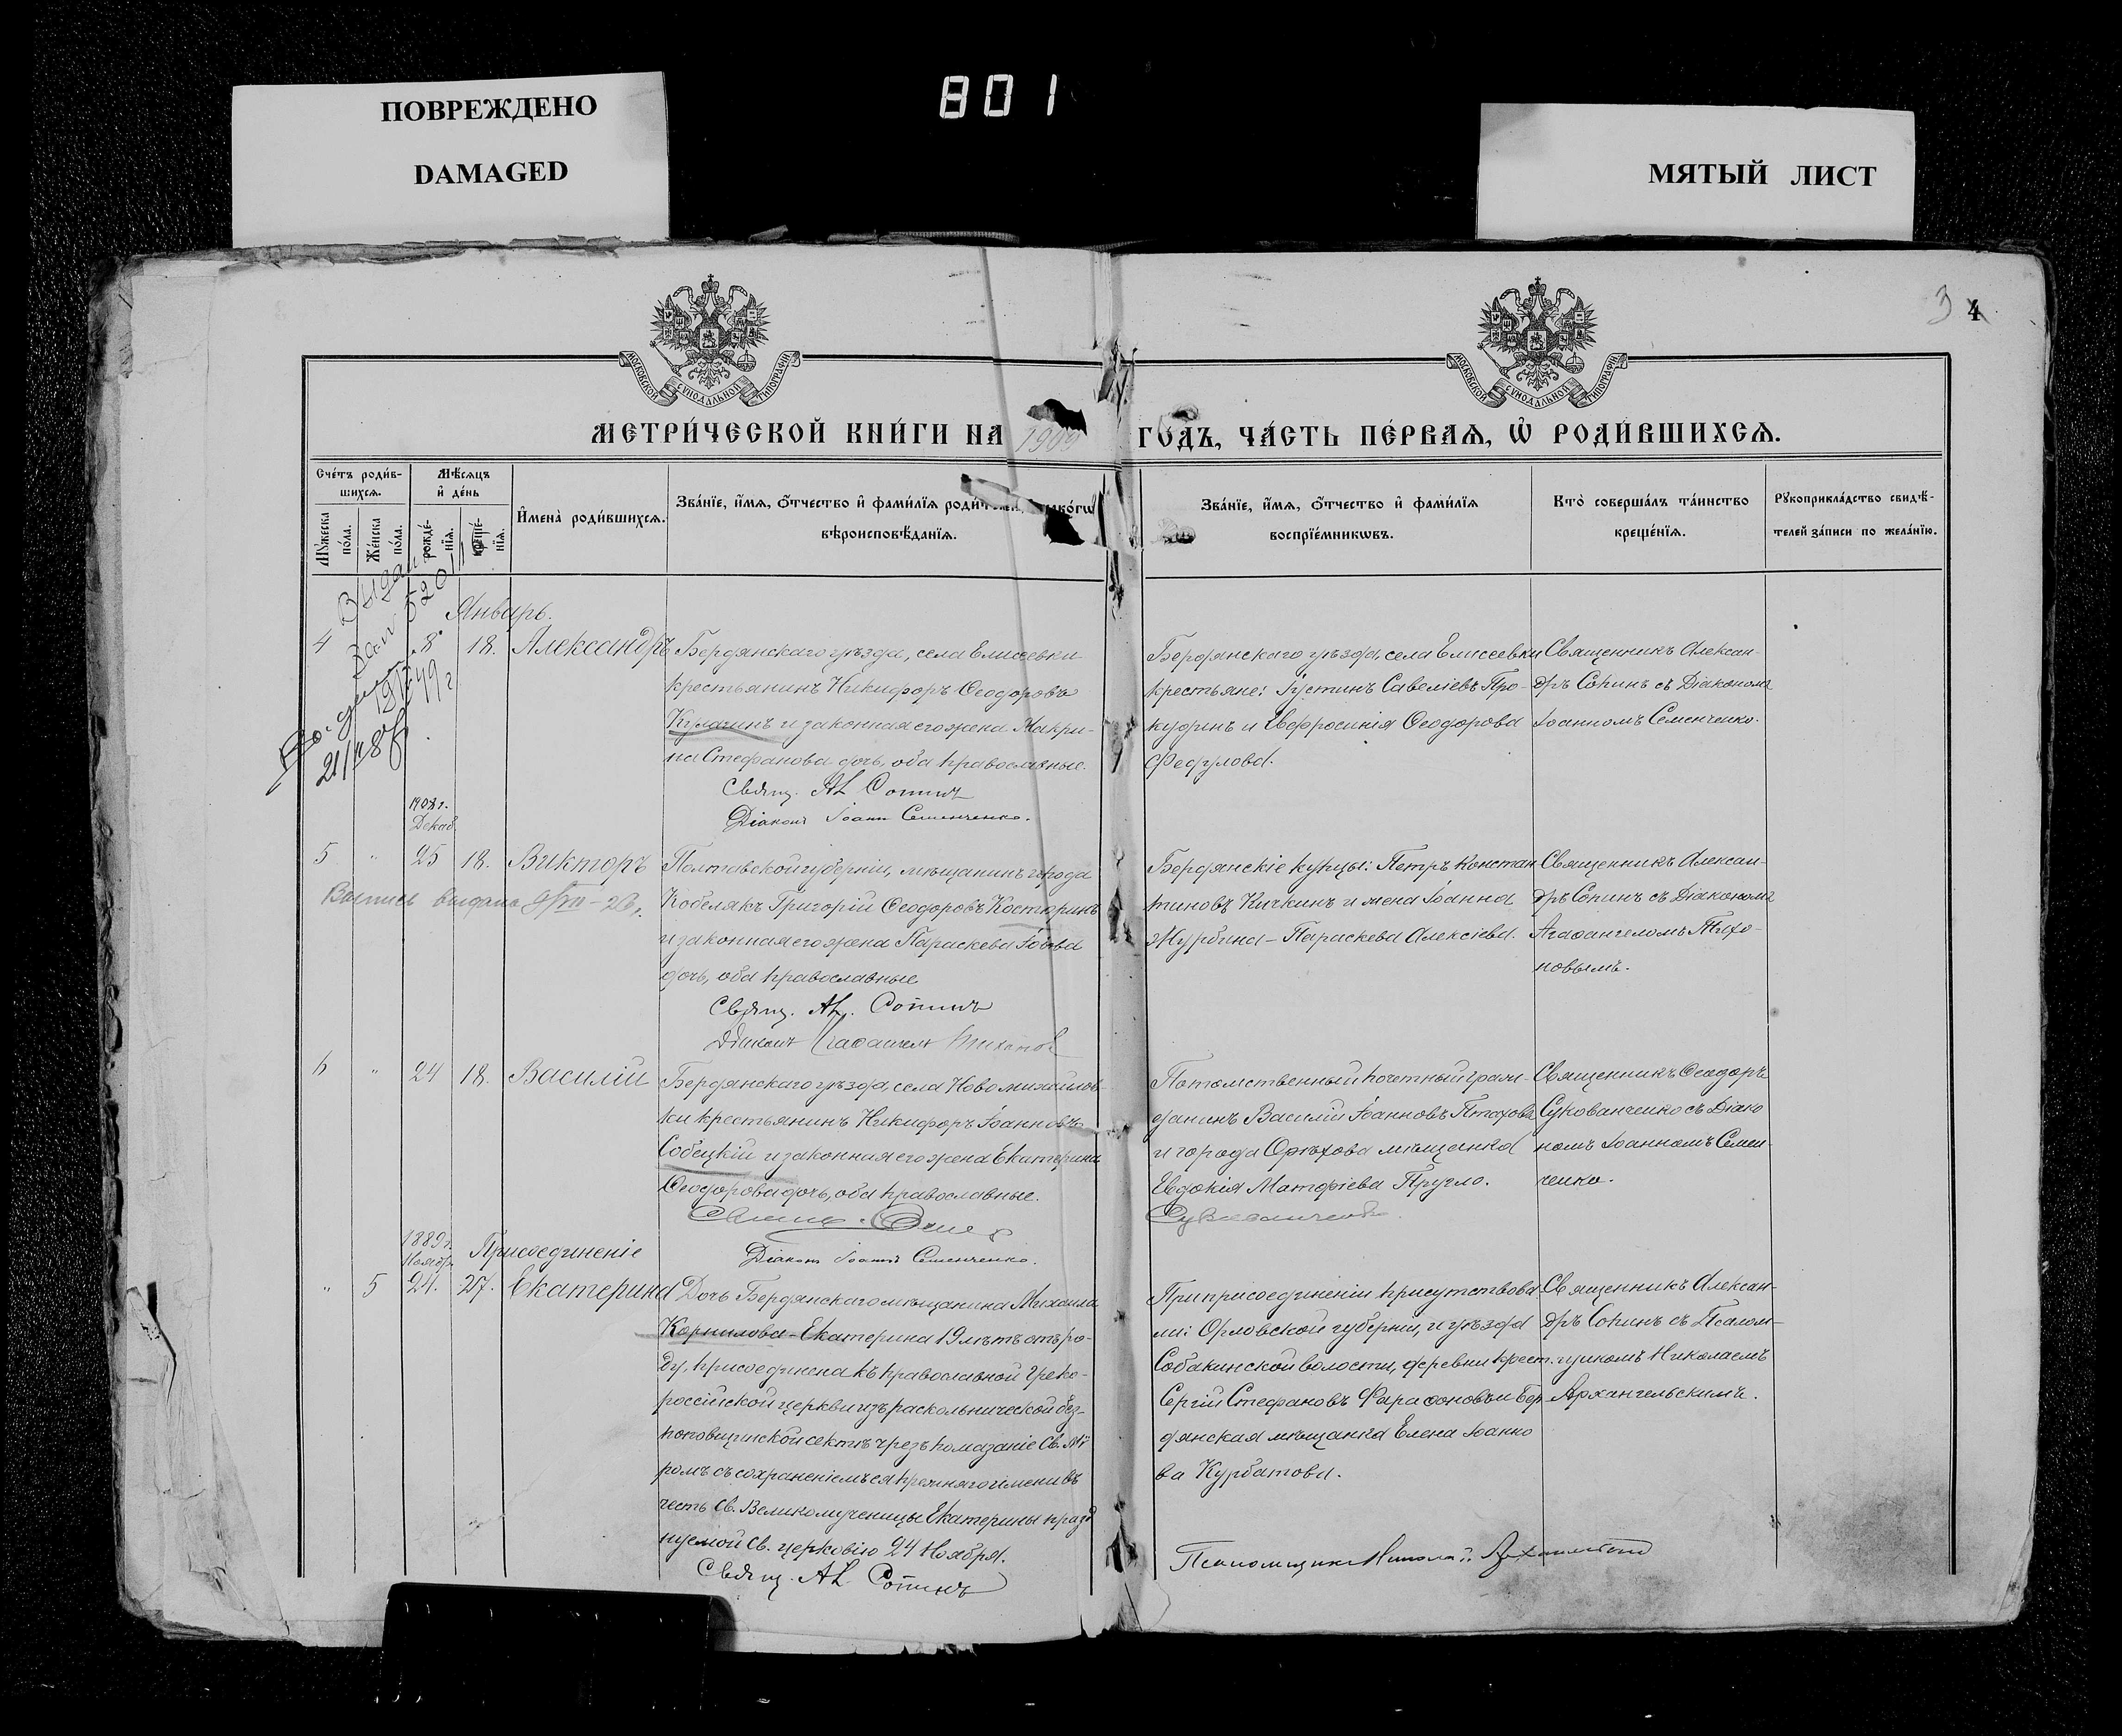 ПОВРЕЖДЕНО
DAMAGED
801
МЯТЫЙ ЛИСТ
3 4
МОСКОВСКОЙ СѴНОДАЛЬНОЙ ТИПОГРАФІИ
МОСКОВСКОЙ СѴНОДАЛЬНОЙ ТИПОГРАФІИ
МЕТРИ́ЧЕСКОЙ КНИ́ГИ НА 1909 ГО́ДЪ, ЧА́СТЬ ПЕ́РВАѦ, Ѡ҆ РОДИ́ВШИХСѦ.
Сче́тъ роди́в-
шихсѧ.
Мѣ́сѧцъ
и҆ де́нь
Мꙋ́жеска
по́ла.
Же́нска
по́ла.
рожде́-
нїѧ.
креще́-
нїѧ.
И҆мена̀ роди́вшихсѧ.
Зва́нїе, и҆́мѧ, ѻ҆́тчество и҆ фами́лїѧ роди́телей,
вѣроисповѣ́данїѧ.
Зва́нїе, и҆́мѧ, ѻ҆́тчество и҆ фами́лїѧ
воспрїе́мникѡвъ.
Кто̀ соверша́лъ та́инство
креще́нїѧ.
Рꙋкоприкла́дство свидѣ́-
телей за́писи по жела́нїю.
Январь.
4 8 18. Александръ
Бердянскаго уѣзда, села Елисеевки
крестьянинъ Никифоръ Ѳеодоровъ
Кулагинъ и законная его жена Макри-
на Стефанова дочь, оба православные.
Свящ. Ал Сопинъ
Діаконъ Іоаннъ Семенченко.
Бердянскаго уѣзда, села Елисеевки
крестьяне: Іустинъ Савеліевъ Про-
кудинъ и Евфросинія Ѳеодорова
Федулова.
Священникъ Алексан-
дръ Сопинъ съ Діакономъ
Іоанномъ Семенченко.
1908 г.
Декаб.
5 " 25 18. Викторъ
Выпись выдана
Полтавской губерніи, мѣщанинъ города
Кобелякъ Григорій Ѳеодоровъ Костыринъ
и законная его жена Параскева Іовва
дочь, оба православные
Свящ. Ал. Сопинъ
Діаконъ Агаѳангелъ Тихоновъ
Бердянскіе купцы: Петръ Констан
тиновъ Кичкинъ и жена Іоанна
Журбина – Параскева Алексіева.
Священникъ Алексан-
дръ Сопинъ съ Діакономъ
Агаѳангеломъ Тихо-
новымъ.
6 " 24 18. Василій
Бердянскаго уѣзда, села Новомихайлов-
ки крестьянинъ Никифоръ Іоанновъ
Собецкій и законная его жена Екатерина
Ѳеодорова дочь, оба православные.
Діаконъ Іоаннъ Семенченко.
Потомственный почетный граж-
данинъ Василій Іоанновъ Птахова
и города Орѣхова мѣщанка
Евдокія Матфіева Пругло.
Священникъ Ѳеодоръ
Сукованченко съ Діако
номъ Іоанномъ Семен
ченко.
1889 г.
Ноябр.
Присоединеніе
" 5 24. 27. Екатерина
Дочь Бердянскаго мѣщанина Михаила
Корнилова – Екатерина 19 лѣтъ отъ ро-
ду, присоединена къ православной Греко-
россійской церкви изъ раскольнической без-
поповщинской секты чрезъ помазаніе Св. Мѵ
ромъ съ сохраненіемъ ея прежняго имени въ
честь Св. Великомученицы Екатерины празд
нуемой Св. церковію 24 Ноября.
Свящ. Ал. Сопинъ
При присоединеніи присутствова
ли: Орловской губерніи, и уѣзда
Собакинской волости, деревни крест.
Сергій Стефановъ Фарафоновъ и Бер
дянская мѣщанка Елена Іоанно
ва Курбатова.
Псаломщикъ Николай Архангельскій
Священникъ Алексан-
дръ Сопинъ съ Псалом-
щикомъ Николаемъ
Архангельскимъ.